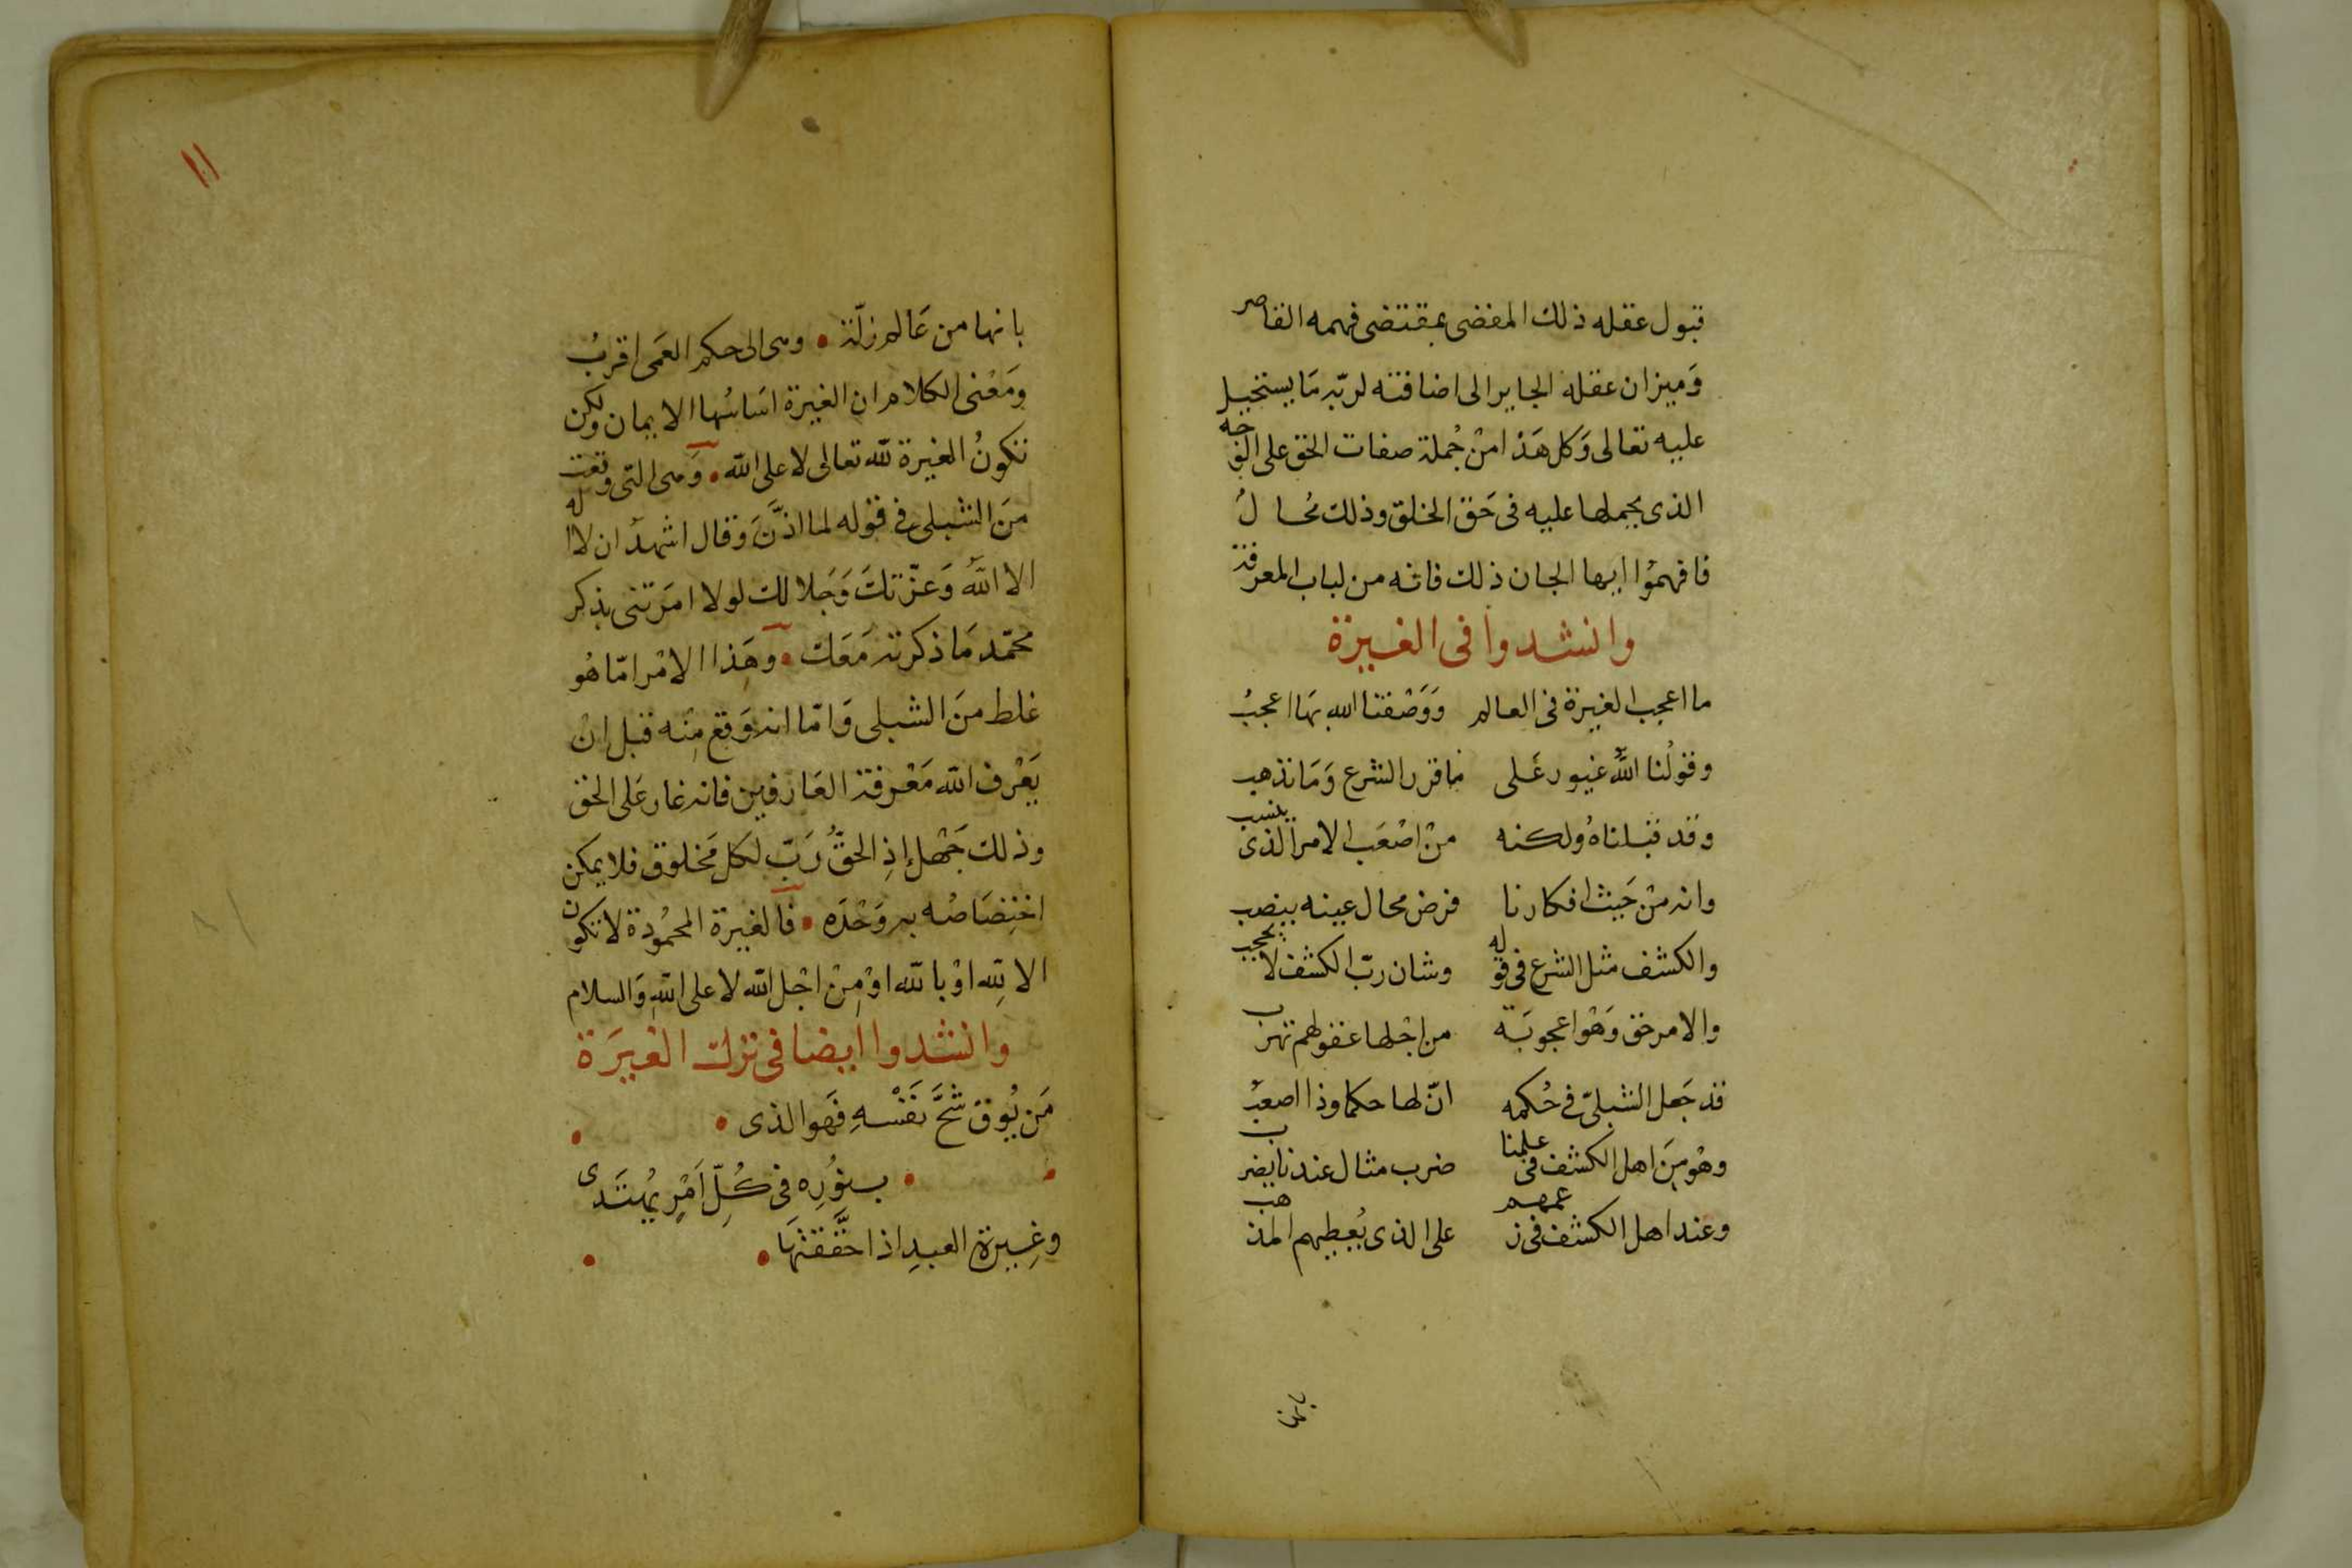 قبول عقله ذلك المفضى بمقتضى فهمه القاصر
وَميزان عقله الجاير الى اضافته لربّه مَا يستحيل
عليه تعالى وَكل هَذا منْ جُملة صفات الحق على الوجه
الذى يحملها عليه فى حَق الخلق وذلك مُحالُ
فافهمُوا ايها الجان ذلك فانه من لباب المعرفة
وانشدوا فى الغيرة
ما اعجب الغيرة فى العالم وَوَصْفنا الله بهَا اعجبُ
وقولُنا اللهُ غيور عَلى مَا قرر الشرع وَمَا نذهب
وقد قبلناهُ ولكنه منْ اصْعَب الامر الذى ينسب
وانه منْ حَيث افكارنا فرض محال عينه ينصب
والكشف مثل الشرع فى قوله وشان ربّ الكشف لا يحجب
والامر حق وَهْو اعجوبَة من اجْلها عقولهم تهرب
قد جَعل الشبلىّ فى حُكمه انّ لها حكما وذا اصعبُ
وهْو مِنَ اهل الكشف فى علمنا ضرب مثال عندنا يضرب
وعند اهل الكشف فى زعمهم على الذى يُعطيهم المذهب
بانها
١٠١
بانها من عَالم زلّة • وهى الى حكم العَمى اقربُ
ومَعْنى الكلام ان الغيرة اسَاسُها الايمان ولكن
تكونُ الغيرة لله تعالى لا على الله • وَهى التى وقعت
منَ الشبلى فى قوله لما اذَّنَ وَقال اشهدُ ان لا اله
الا اللهُ وَعزّتكَ وَجَلالك لولا امَرتنى بذكر
محمّد مَا ذكرته مَعَك • وهَذا الامْر امّا هُو
غلط منَ الشبلى وَامّا انه وَقع مِنه قبل انْ
يَعْرف الله مَعْرفة العَارفين فانه غار عَلى الحق
وذلك جَهْل إذِ الحقُّ رَبّ لكل مَخلوق فلا يمكن
اختِصَاصُه به وَحْدَه • فالغيرة المحْمُودة لا تكون
الا لِله اوْ بالله اوْ مِنْ اجْل الله لا على اللهِ وَالسلام
وانشدوا ايضا فى ترك الغيرَة
مَن يُوق شُحَّ نَفْسهِ فَهو الذى •
• بنُورِه فى كُلِّ اَمْرٍ يُهتَدى
وغِيرة العبدِ اذا حَقَّقتهَا •